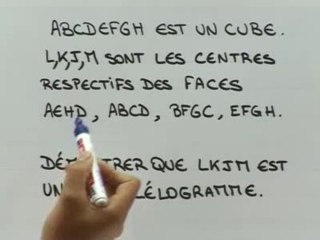 ABCDEFGH EST UN CUBE.
L,K,J,M SONT LES CENTRES
RESPECTIFS DES FACES
AEHD, ABCD, BFGC, EFGH.
QUE LKJM EST